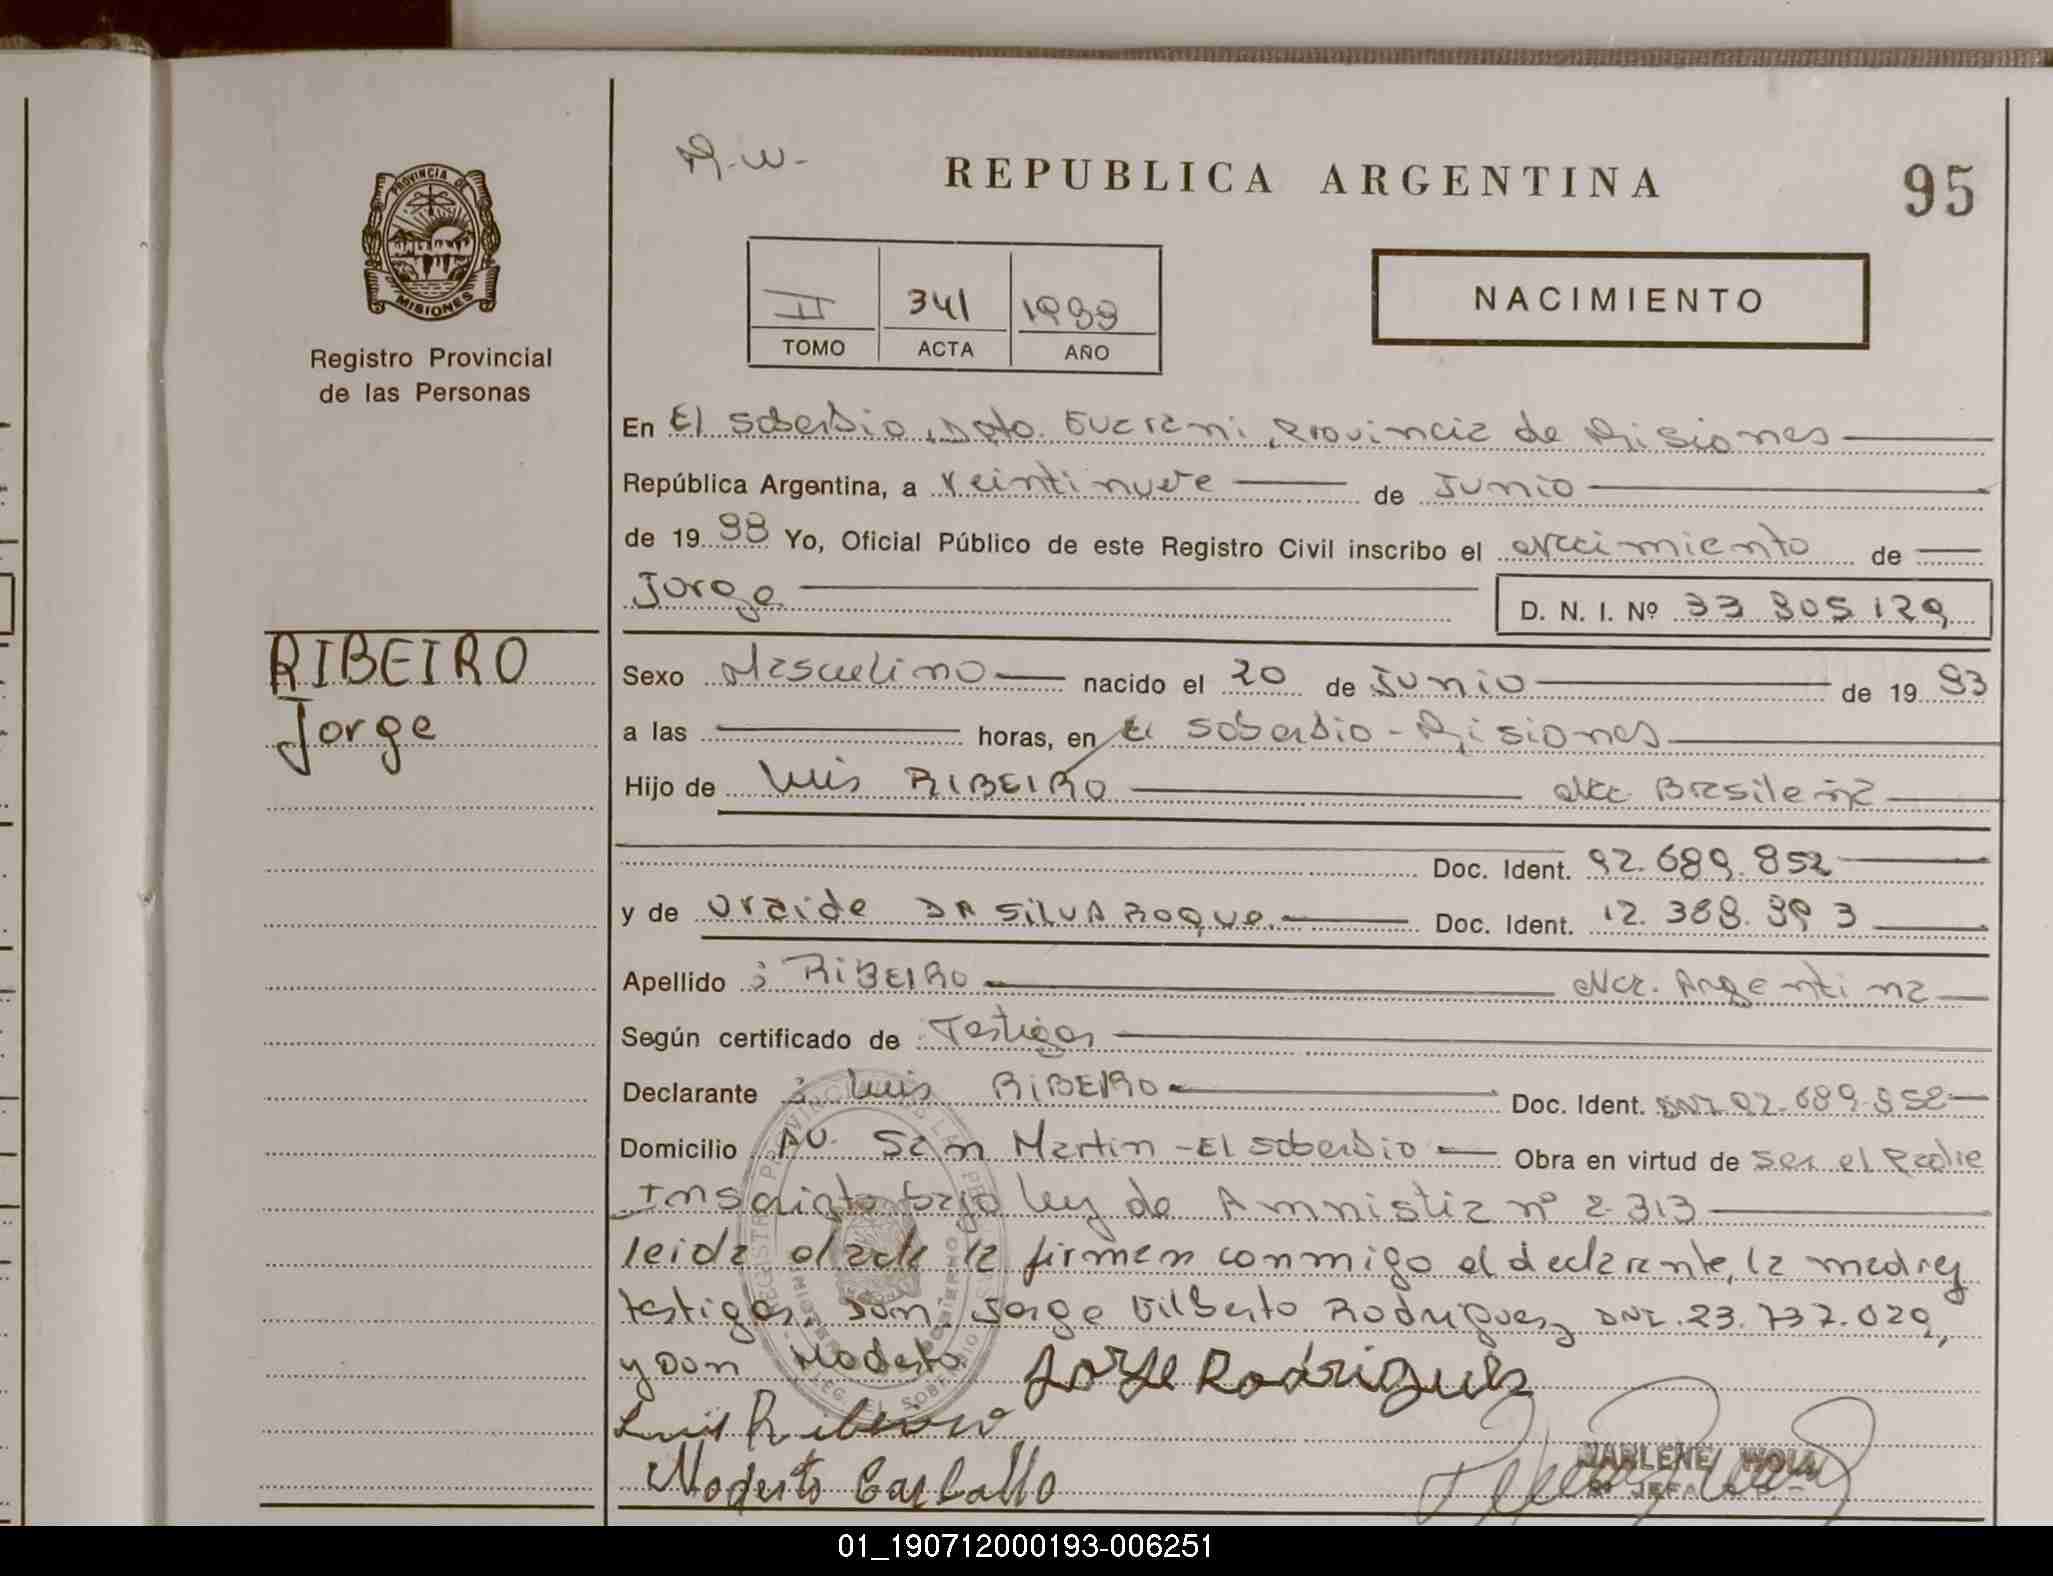 R.W.
REPUBLICA ARGENTINA
95
PROVINCIA DE
MISIONES
Registro Provincial
de las Personas
II 341
TOMO ACTA AÑO
NACIMIENTO
En El Soberbio, Dpto. Guarani, Provincia de Misiones
República Argentina, a veintinueve de Junio
de 19 Yo, Oficial Público de este Registro Civil inscribo el nacimiento de
Jorge D. N. I. Nº
RIBEIRO
Jorge
Sexo Masculino nacido el 20 de Junio de 19
a las horas, en El Soberbio - Misiones
Hijo de Luis RIBEIRO Nac. Brasileña
Doc. Ident. 92.689.852
y de DA SILVA ROQUE. Doc. Ident.
Apellido : RIBEIRO Nac. Argentina
Según certificado de Testigos
Declarante : Luis RIBEIRO Doc. Ident. DNI. 92.689.852
Domicilio AV. San Martin - El Soberbio Obra en virtud de ser el Padre
Inscripto bajo ley de Amnistia nº 2.313
leida el acta la firman conmigo el declarante, la madre y
testigos. Don: Jorge Gilberto Rodriguez, DNI. 23.737.029,
y Don Modesto Jorge Rodriguez
Luis Ribeiro
Modesto Carballo
MARLENE
JEFA
01_190712000193-006251